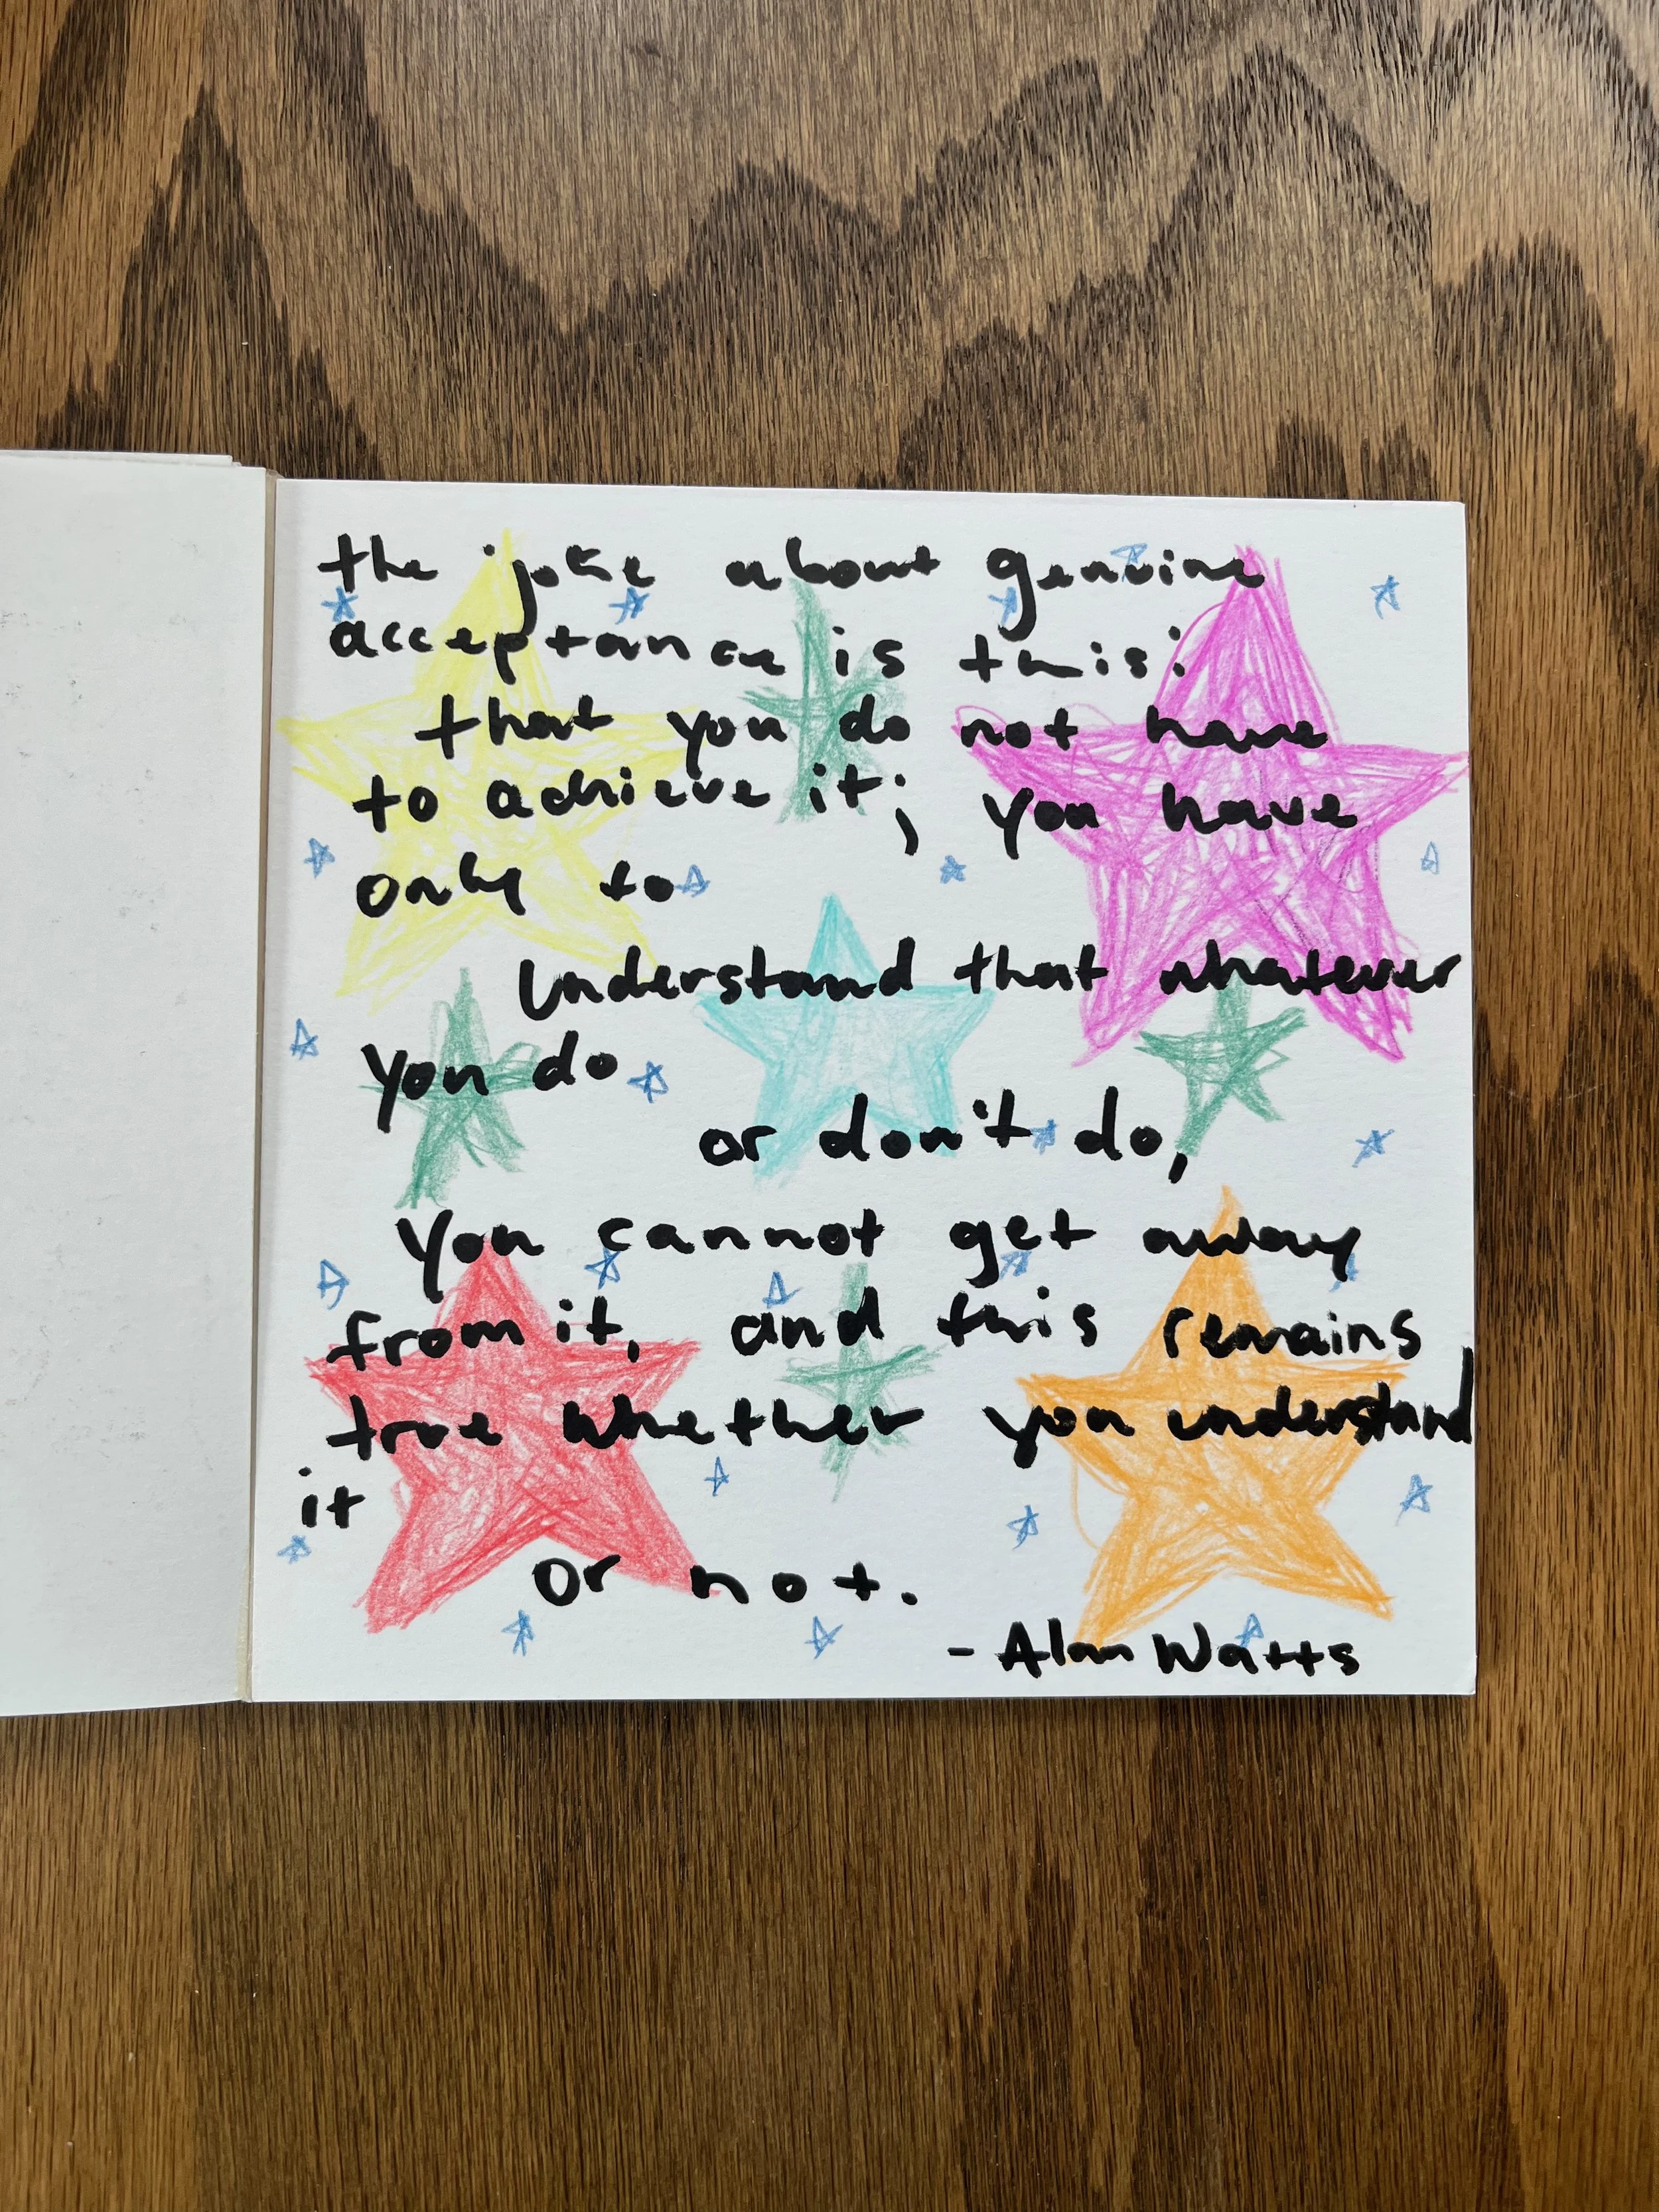 the joke about genuine
acceptance is this:
that you do not have
to achieve it; you have
only to
understand that whatever
you do
or don't do,
you cannot get away
from it, and this remains
true whether you understand
it
or not.
- Alan Watts